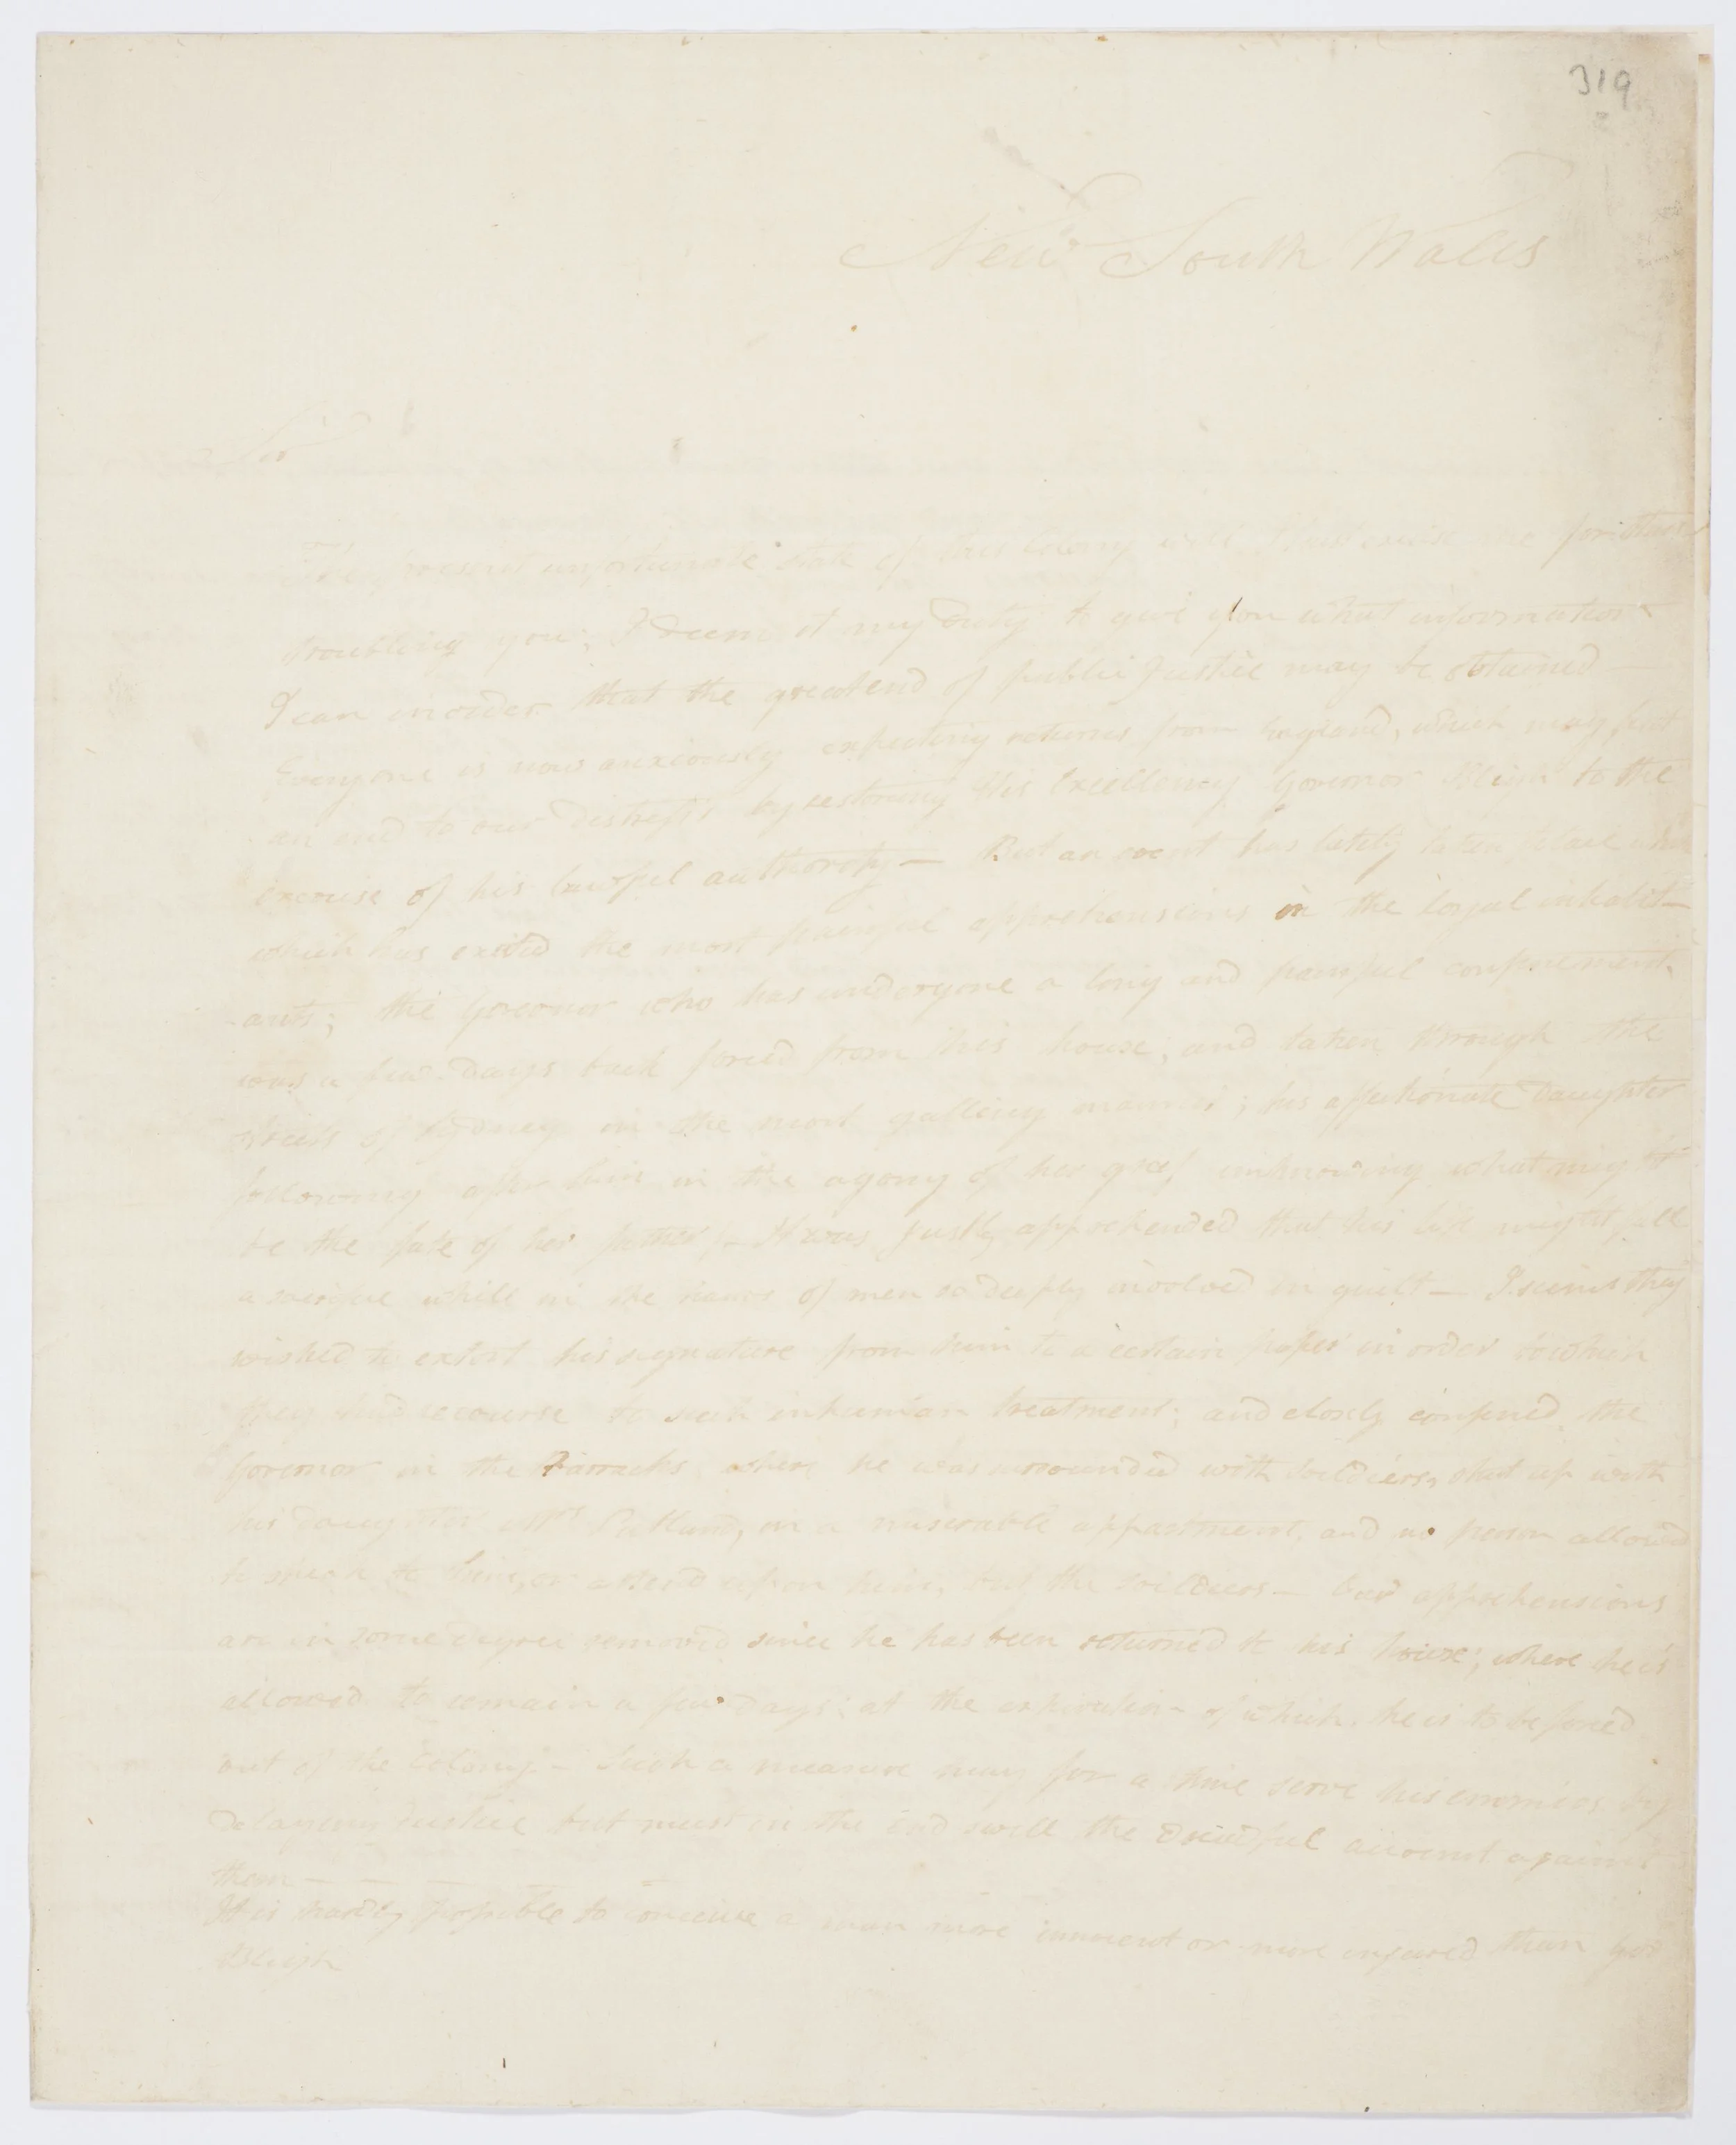 319
New South Wales
Sir
The present unfortunate state of this Colony will I trust excuse me for thus
troubling you; I deem it my Duty to give you what information
I can in order that the great end of public Justice may be obtained —
Everyone is now anxiously expecting returns from England, which may put
an end to our distress by restoring His Excellency Governor Bligh to the
exercise of his lawful authority — But an event has lately taken place
which has exited the most painful apprehensions in the loyal inhabit-
-ants; the Governor who has undergone a long and painful confinement.
was a few days back forced from his house; and taken through the
streets of Sydney in the most galling manner; his affectionate Daughter
following after him in the agony of her grief unknowing what might
be the fate of her father! — It was justly apprehended that his life might fall
a sacrifice while in the hands of men so deeply involved in guilt — It seems they
wished to extort his signature from him to a certain paper in order to which
they had recourse to such inhuman treatment; and closely confined the
Governor in the Barracks where he was surrounded with soldiers, shut up with
his daughter Mrs Putland, in a miserable appartment, and no person allowed
to speak to him, or attend upon him, but the soldiers — Our apprehensions
are in some degree removed since he has been returned to his house; where he is
allowed to remain a few days; at the expiration of which, he is to be forced
out of the Colony — Such a measure may for a time serve his enemies by
delaying Justice but must in the end swell the dreadful account against
them — — — — —
It is hardly possible to conceive a man more innocent or more injured than Gov
Bligh